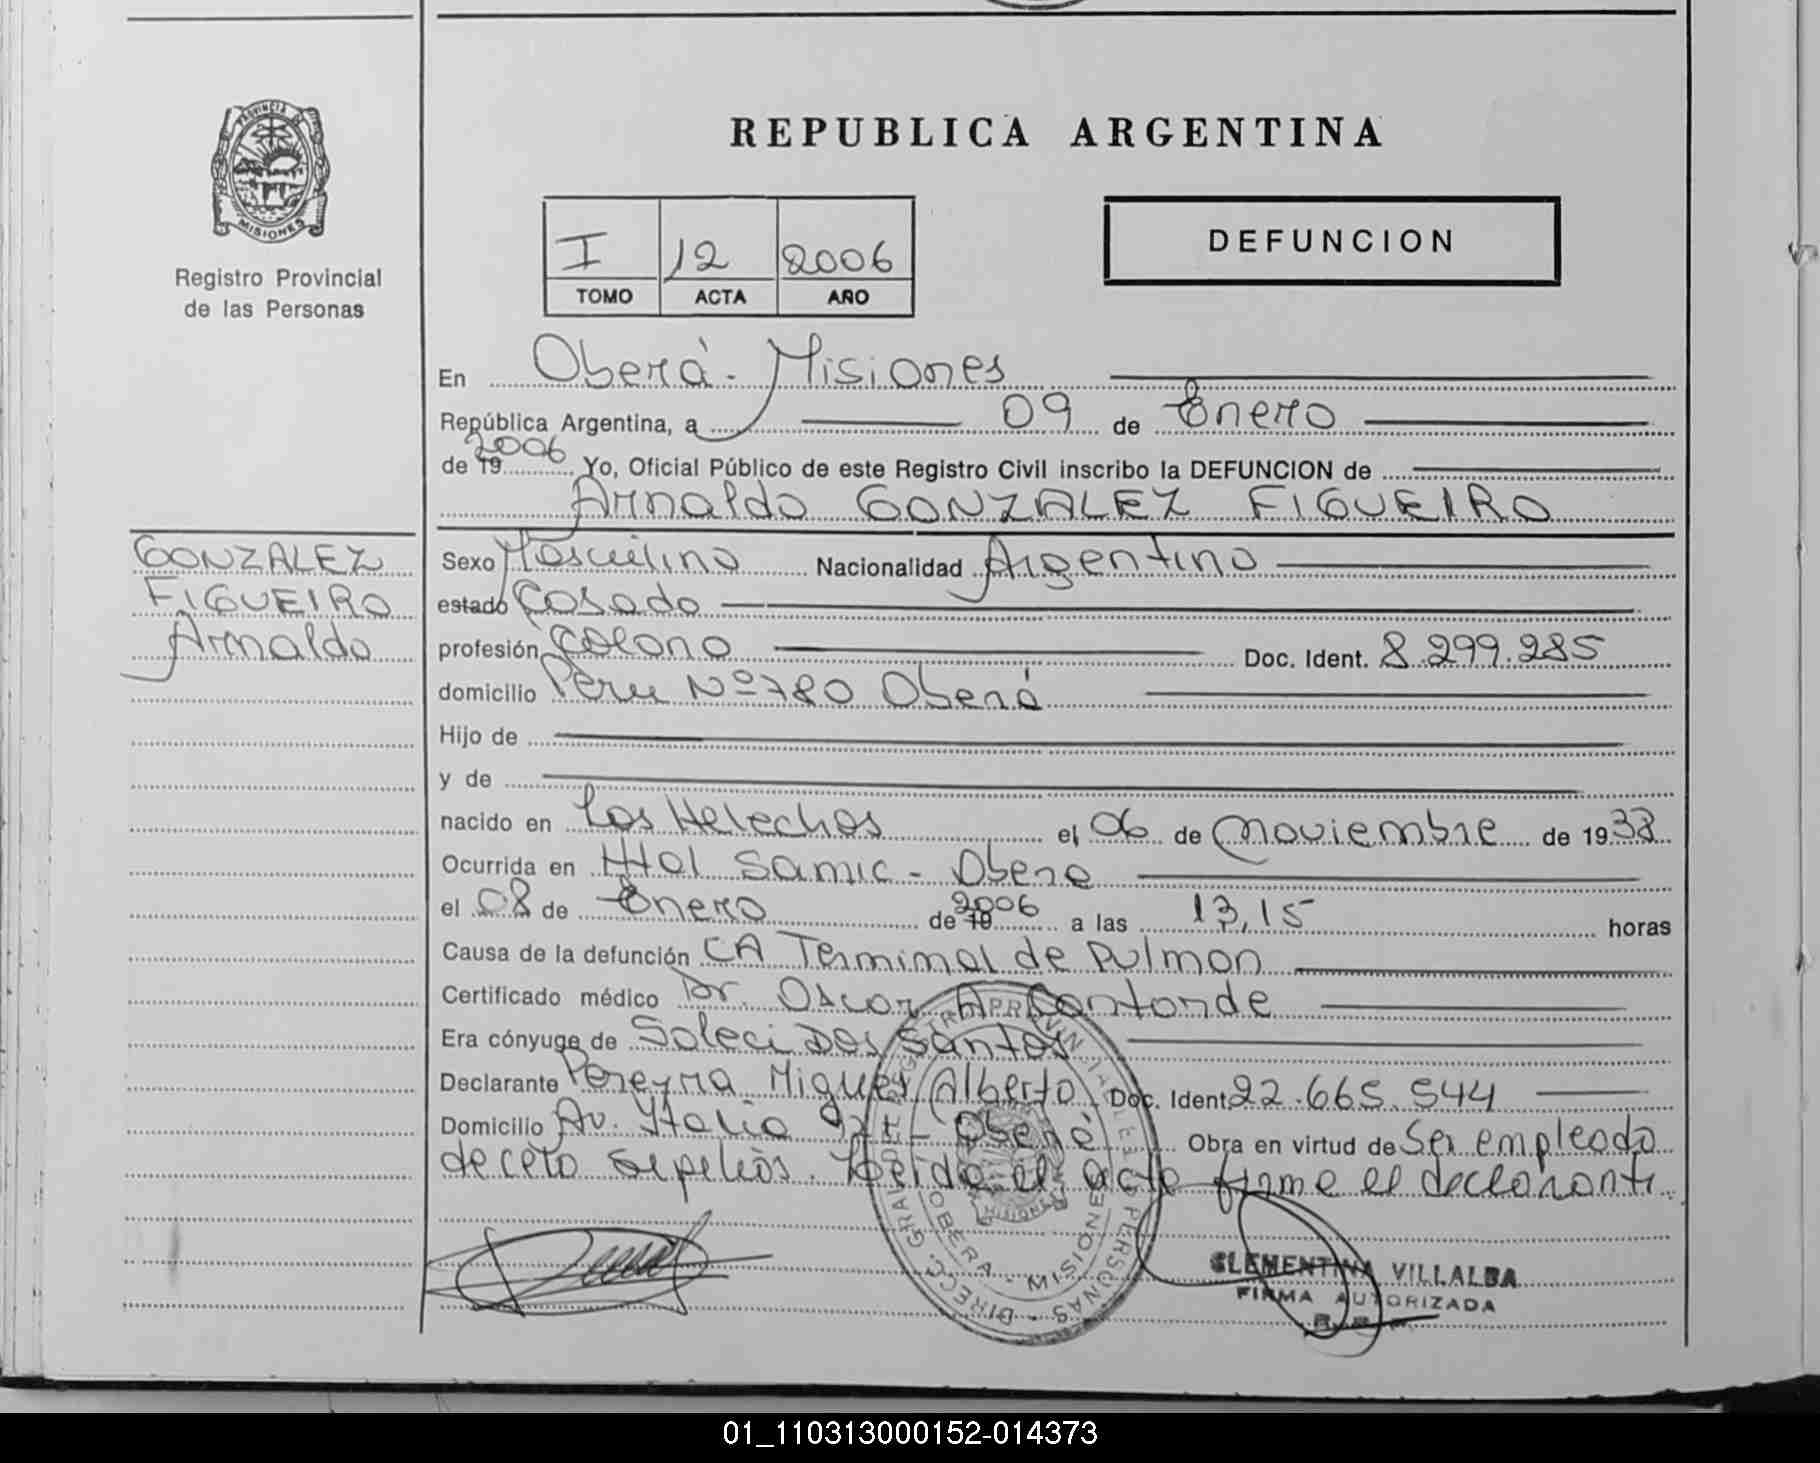 PROVINCIA DE
MISIONES
Registro Provincial
de las Personas
REPUBLICA ARGENTINA
I 12 2006
TOMO ACTA AÑO
DEFUNCION
En Oberá - Misiones
República Argentina, a 09 de Enero
de 19 2006 Yo, Oficial Público de este Registro Civil inscribo la DEFUNCION de
Arnaldo GONZALEZ FIGUEIRO
GONZALEZ
FIGUEIRO
Arnaldo
Sexo Masculino Nacionalidad Argentino
estado Casado
profesión Colono Doc. Ident. 8.299.285
domicilio Peru Nº 780 Oberá
Hijo de
y de
nacido en Los Helechos el 06 de noviembre de 19
Ocurrida en Htal Samic - Obera
el 08 de Enero de 19 2006 a las 13,15 horas
Causa de la defunción CA Terminal de Pulmon
Certificado médico Dr. Oscar A.
Era cónyuge de Soleci Dos Santos
Declarante Pereyra Miguel Alberto Doc. Ident 22.665.544
Domicilio Av. Italia Oberá Obra en virtud de Ser empleado
de sepelios. Leida el acta firma el declarante
CLEMENTINA VILLALBA
FIRMA AUTORIZADA
OBERA - MISIONES
01_110313000152-014373